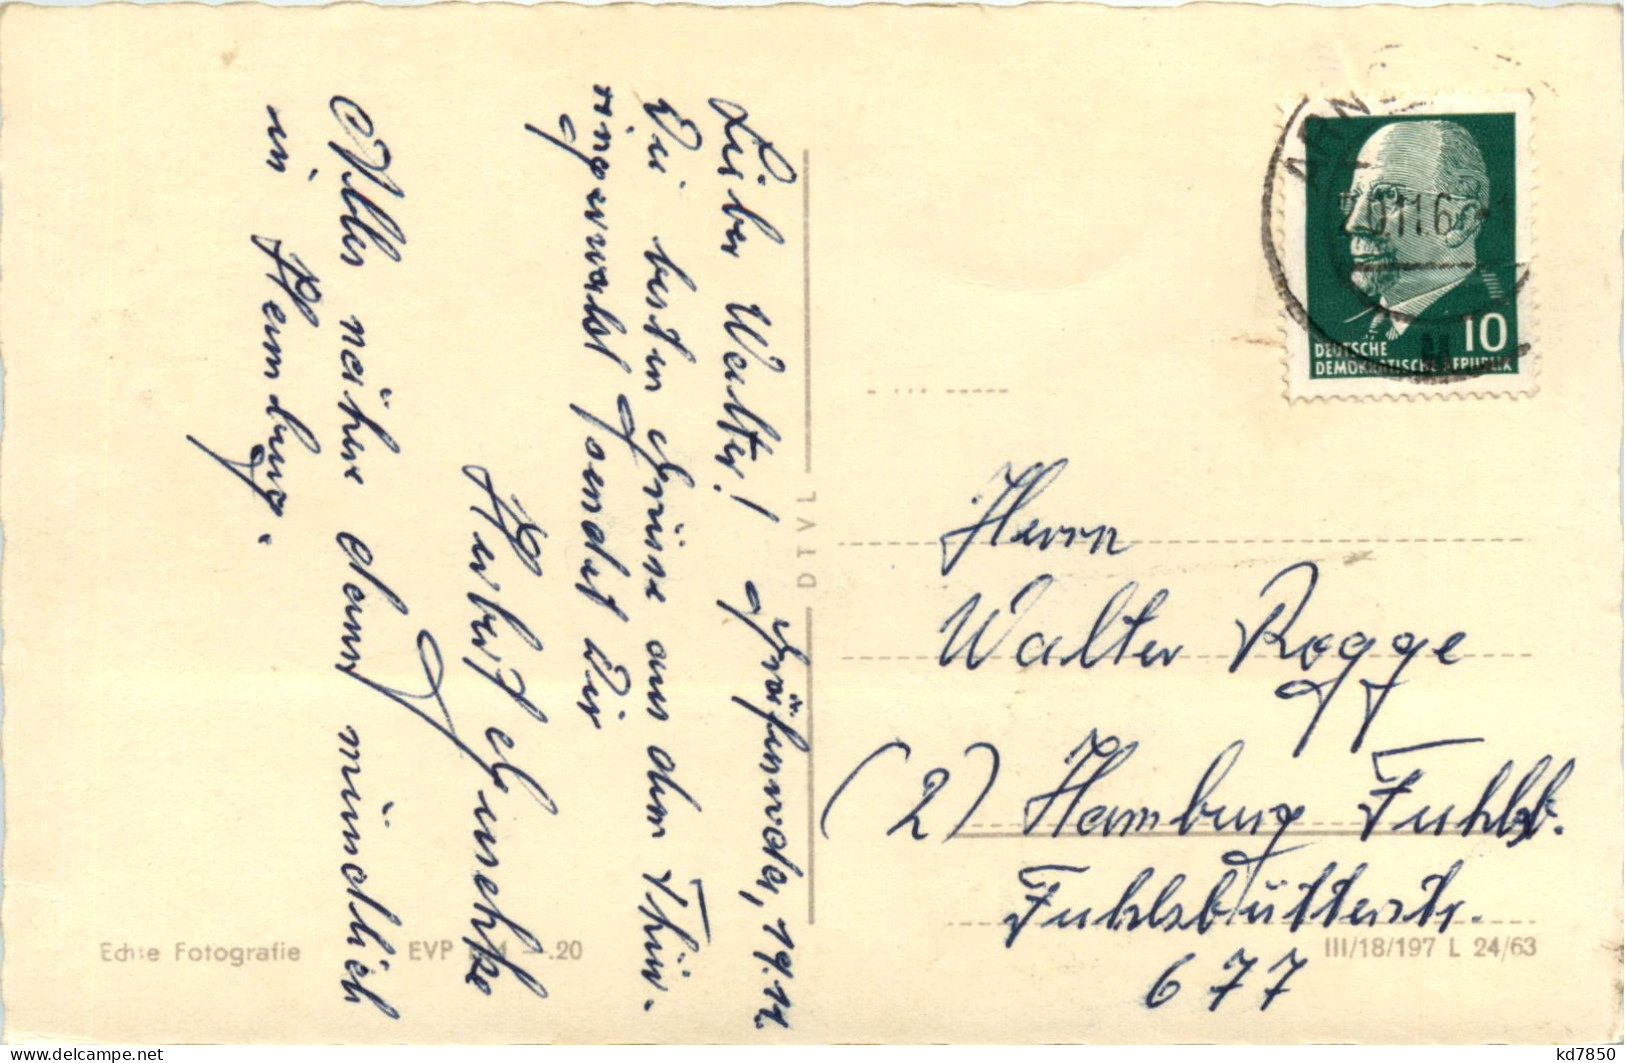 Gräfenroda, 19.11.
Lieber Walter!
Die besten Grüsse aus dem Thür-
ingerwald sendet Dir
Herbert
Alles nähere dann mündlich
in Hamburg.
DTVL
ARN
20.11.6
10
DEUTSCHE
DEMOKRATISCHE REPUBLIK
Herrn
Walter Rogge
(2) Hamburg Fuhlsb.
Fuhlsbüttlerstr.
677
Echte Fotografie
EVP
.20
III/18/197 L 24/63
kd7850